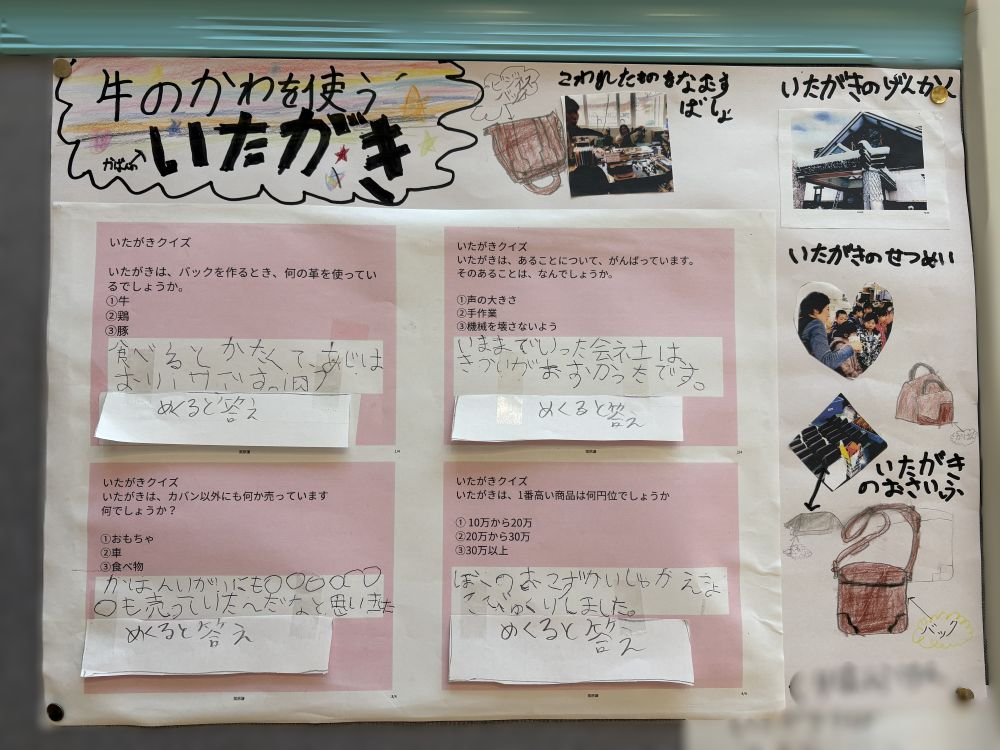 牛のかわを使う
かばんの
いたがき
ビジネス
バックス
こわれたものなおす
ばしょ
いたがきのげんかん
いたがきのせつめい
いたがき
のおさいふ
かばん
バック
いたがきクイズ
いたがきは、バックを作るとき、何の革を使ってい
るでしょうか。
①牛
②鶏
③豚
食べるとかたくて、あじは
めくると答え
いたがきクイズ
いたがきは、あることについて、がんばっています。
そのあることは、なんでしょうか。
①声の大きさ
②手作業
③機械を壊さないよう
いままでいった会社は
きかいがおおかったです。
めくると答え
いたがきクイズ
いたがきは、カバン以外にも何か売っています
何でしょうか？
①おもちゃ
②車
③食べ物
かばんいがいにも〇〇〇〇〇
〇も売っていたんだなと思いました
めくると答え
いたがきクイズ
いたがきは、1番高い商品は何円位でしょうか
① 10万から20万
②20万から30万
③30万以上
ぼくのおこずかいじゃかえなくて
びっくりしました。
めくると答え